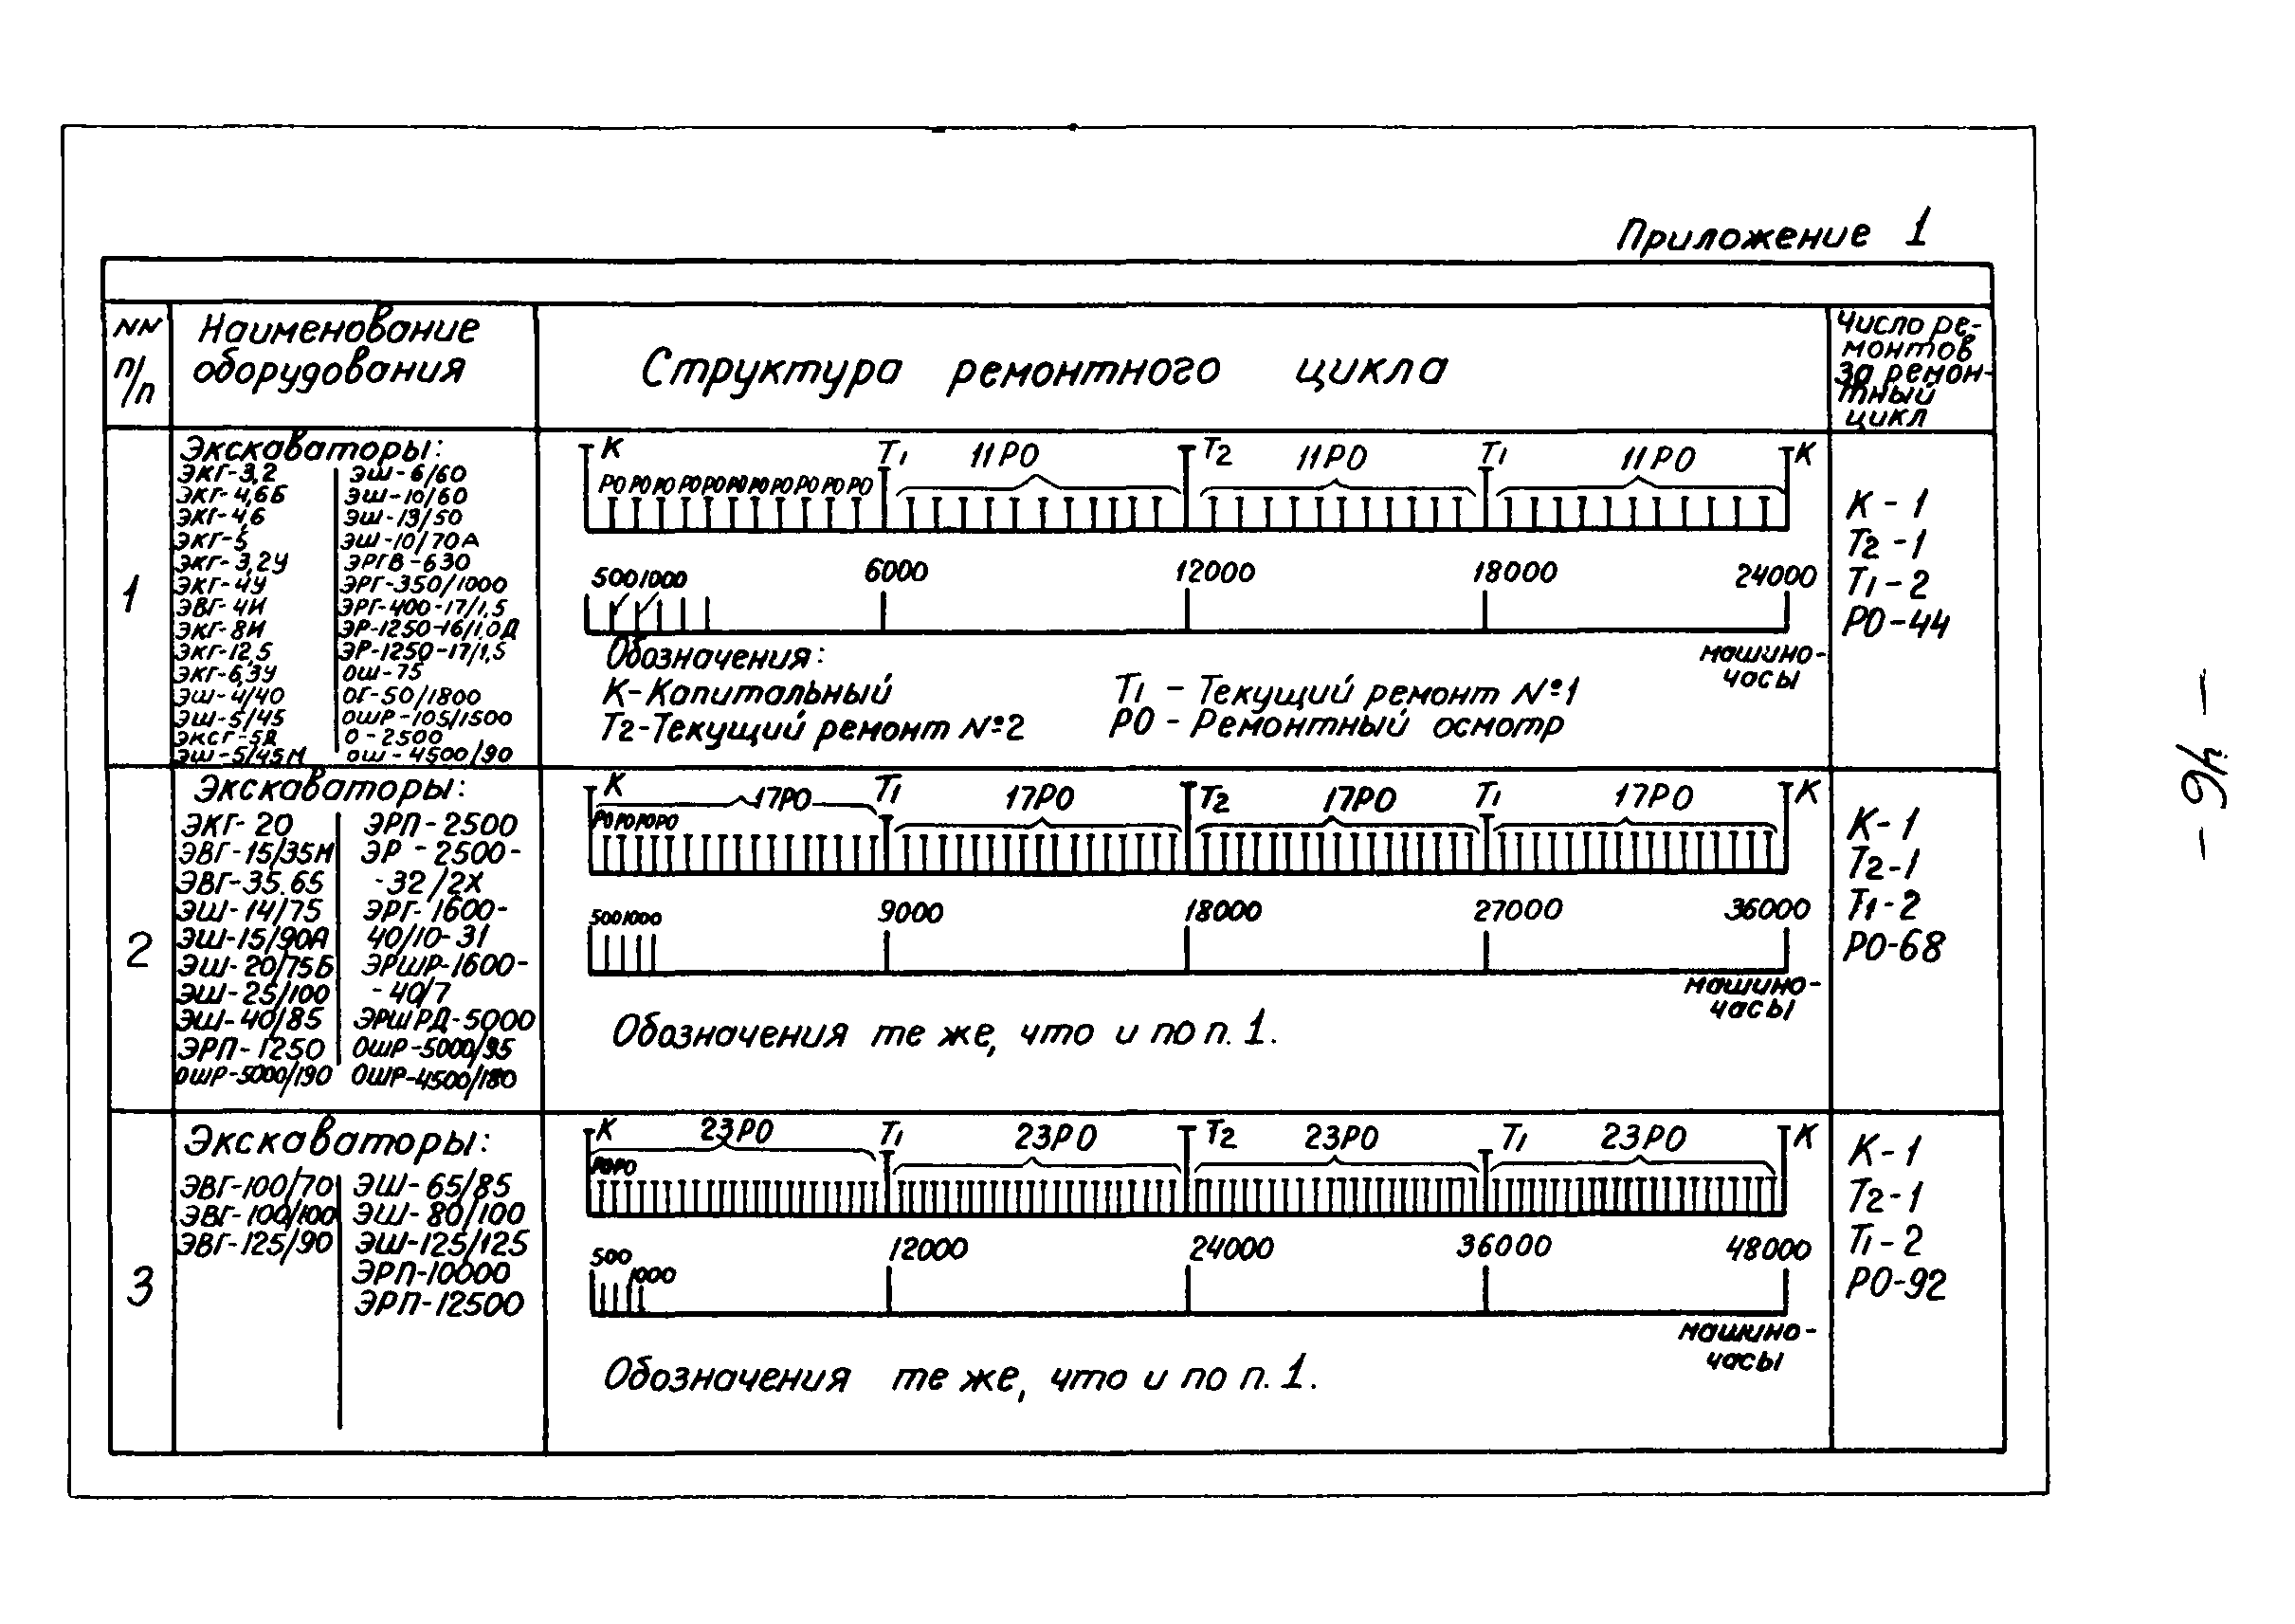 Приложение 1
NN п/п
Наименование оборудования
Структура ремонтного цикла
Число ре-
монтов
за ремон-
тный
цикл
1
Экскаваторы:
ЭКГ-3,2
ЭКГ-4,6Б
ЭКГ-4,6
ЭКГ-5
ЭКГ-3,2У
ЭКГ-4У
ЭВГ-4И
ЭКГ-8И
ЭКГ-12,5
ЭКГ-6,3У
ЭШ-4/40
ЭШ-5/45
ЭКСГ-5Д
ЭШ-5/45М
ЭШ-6/60
ЭШ-10/60
ЭШ-13/50
ЭШ-10/70А
ЭРГВ-630
ЭРГ-350/1000
ЭРГ-400-17/1,5
ЭР-1250-16/1,0Д
ЭР-1250-17/1,5
ОШ-75
ОГ-50/1800
ОШР-105/1500
О-2500
ОШ-4500/90
К Т1 11РО Т2 11РО Т1 11РО К
РО РО РО РО РО РО РО РО РО РО РО
500 1000 6000 12000 18000 24000
машино-
часы
Обозначения:
К-Капитальный
Т1 - Текущий ремонт №1
Т2-Текущий ремонт №2
РО - Ремонтный осмотр
К-1
Т2-1
Т1-2
РО-44
2
Экскаваторы:
ЭКГ-20
ЭВГ-15/35М
ЭВГ-35.65
ЭШ-14/75
ЭШ-15/90А
ЭШ-20/75Б
ЭШ-25/100
ЭШ-40/85
ЭРП-1250
ОШР-5000/190
ЭРП-2500
ЭР-2500-
-32/2Х
ЭРГ-1600-
40/10-31
ЭРШР-1600-
-40/7
ЭРШРД-5000
ОШР-5000/95
ОШР-4500/180
К 17РО Т1 17РО Т2 17РО Т1 17РО К
РО РО РО РО
500 1000 9000 18000 27000 36000
машино-
часы
Обозначения те же, что и по п. 1.
К-1
Т2-1
Т1-2
РО-68
3
Экскаваторы:
ЭВГ-100/70
ЭВГ-100/100
ЭВГ-125/90
ЭШ-65/85
ЭШ-80/100
ЭШ-125/125
ЭРП-10000
ЭРП-12500
К 23РО Т1 23РО Т2 23РО Т1 23РО К
РО РО
500 1000 12000 24000 36000 48000
машино-
часы
Обозначения те же, что и по п. 1.
К-1
Т2-1
Т1-2
РО-92